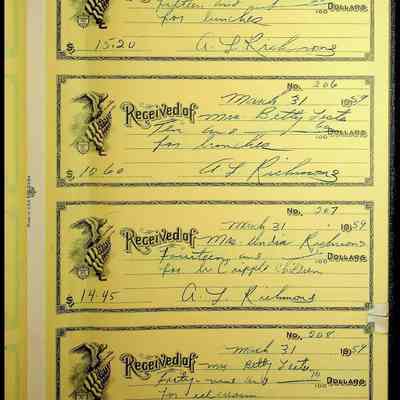 Fifteen and
100 DOLLARS
for lunches
$ 15.20 A L Richmond
No. 206
March 31 1959
Received of Mrs Betty
Ten and 60/100 DOLLARS
for lunches
$ 10.60 A L Richmond
No. 207
March 31 1959
Received of Mrs India Richmond
Fourteen and 100 DOLLARS
for Cripple Children
$ 14.45 A. L. Richmond
No. 208
March 31 1959
Received of Mrs Betty
Forty-nine and 100 DOLLARS
for